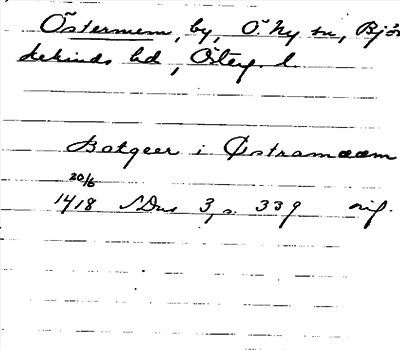 Östermem, by, Ö. Ny sn, Bjö
kekinds hd, Österg. l.
Botgeer i Østramææm
20/6
1418 SDns 3, s. 339 orig.